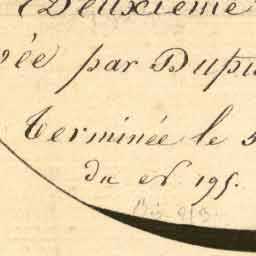 Deuxieme
vée par Dupu
Terminée le 5
du N° 195.